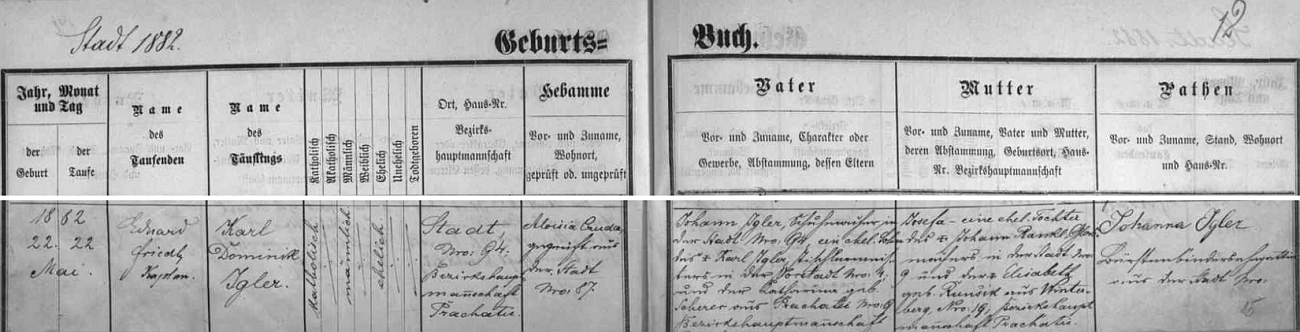 Stadt 1882.
Geburts=
Buch.
12
Jahr, Monat und Tag
der Geburt
der Taufe
Name des Taufenden
Name des Täuflings
Katholisch
Akatholisch
Männlich
Weiblich
Ehelich
Unehelich
Todtgeboren
Ort, Haus-Nr.
Bezirks-
hauptmannschaft
Hebamme
Vor- und Zuname,
Wohnort,
geprüft od. ungeprüft
Vater
Vor- und Zuname, Charakter oder
Gewerbe, Abstammung, dessen Eltern
Mutter
Vor- und Zuname, Vater und Mutter,
deren Abstammung, Geburtsort, Haus-
Nr. Bezirkshauptmannschaft
Pathen
Vor- und Zuname, Stand, Wohnort
und Haus-Nr.
1882
22. 22
Mai.
Eduard
Friedl
Kaplan.
Karl
Dominik
Igler.
katholisch
männlich
ehelich
Stadt,
Nro. 94.
Bezirkshaupt
mannschaft
Prachatic.
Aloisia
geprüft aus
der Stadt
Nro. 87.
Johann Igler, in
der Stadt Nro. 94, ein ehel. Sohn
des Karl Igler,
in der Vorstadt Nro. 4;
und der Katharina geb.
Scherer aus Prachatic Nro. 9
Bezirkshauptmannschaft
Josefa eine ehel. Tochter
des Johann
in der Stadt Nro.
9 und der Elisabeth
geb. aus Winter-
berg, Nro. 19; Bezirkshaupt
mannschaft Prachatic.
Johanna Igler
Bürstenbindersgattin
aus der Stadt Nro.
15